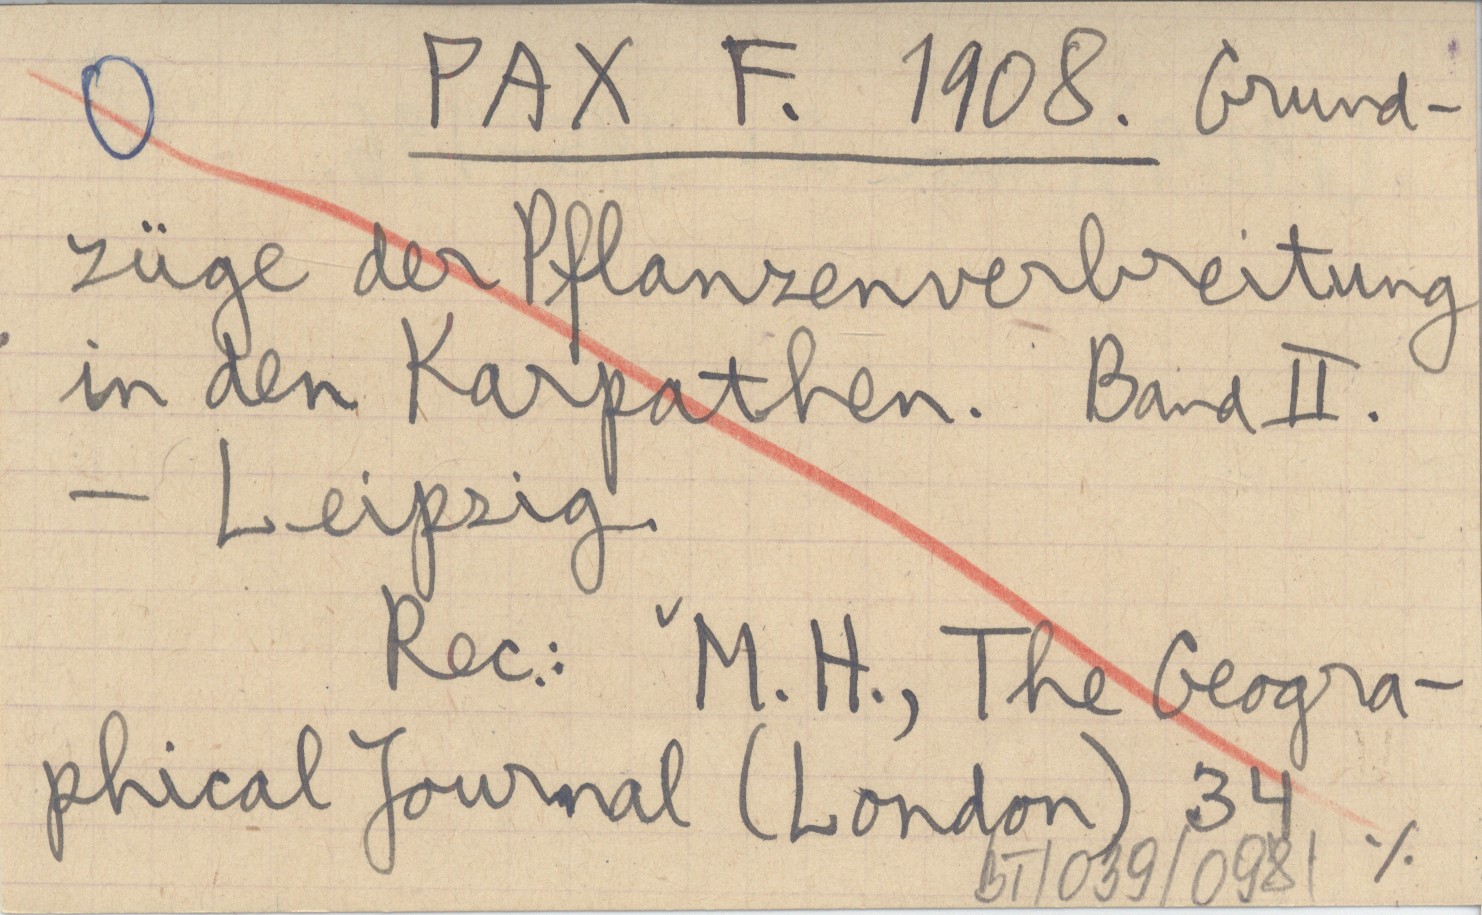 PAX F. 1908. Grund-
züge der Pflanzenverbreitung
in den Karpathen. Band II.
— Leipzig.
Rec.: M.H., The Geogra-
phical Journal (London) 34
BT/039/098/ ·/.